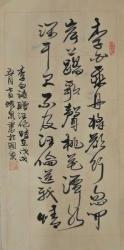 李白乘舟將欲行忽聞
岸上踏歌聲桃花潭水
深千尺不及汪倫送我情
李白詩贈汪倫